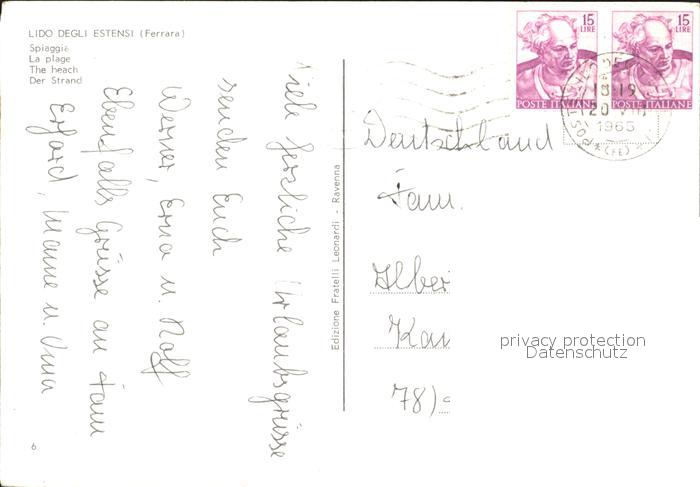 LIDO DEGLI ESTENSI (Ferrara)
Spiaggia
La plage
The heach
Der Strand
Viele herzliche Urlaubsgrüsse
senden Euch
Werner, Erna u. Rolf
Ebenfalls Grüsse an Fam
Erhard, Manne u. Oma
6
Edizione Fratelli Leonardi - Ravenna
15 LIRE
POSTE ITALIANE
15 LIRE
POSTE ITALIANE
18-19
1965
(FE)
Deutschland
Fam.
Alber
Kar
78)
privacy protection
Datenschutz